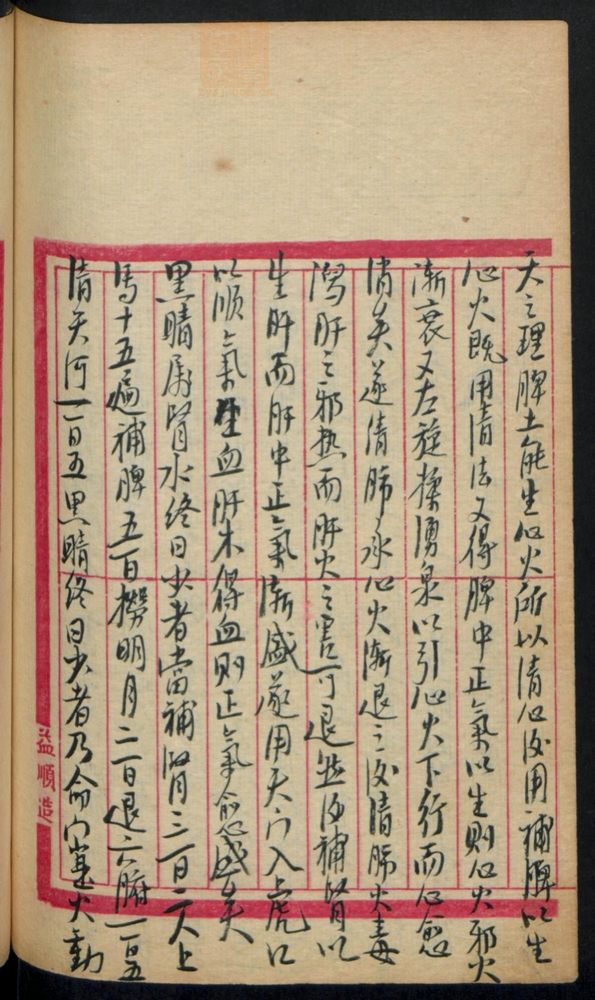 天之理脾土能生心火所以清心後用補脾以生
心火既用清法又得脾中正氣以生則心火邪火
漸衰又左旋揉湧泉以引心火下行而心愈
清矣遂清肺承心火漸退之後清肺火毒
瀉肝之邪热而肝火之害可退然後補腎以
生肝而肝中正氣漸盛遂用天门入虎口
以順氣生血肝木得血則正氣愈盛矣
黑睛属腎水終日少者當補腎三百二人上
馬十五遍補脾五百撈明月二百退六腑一百五
清天河一百五黑睛終日少者乃命门火動
益順造